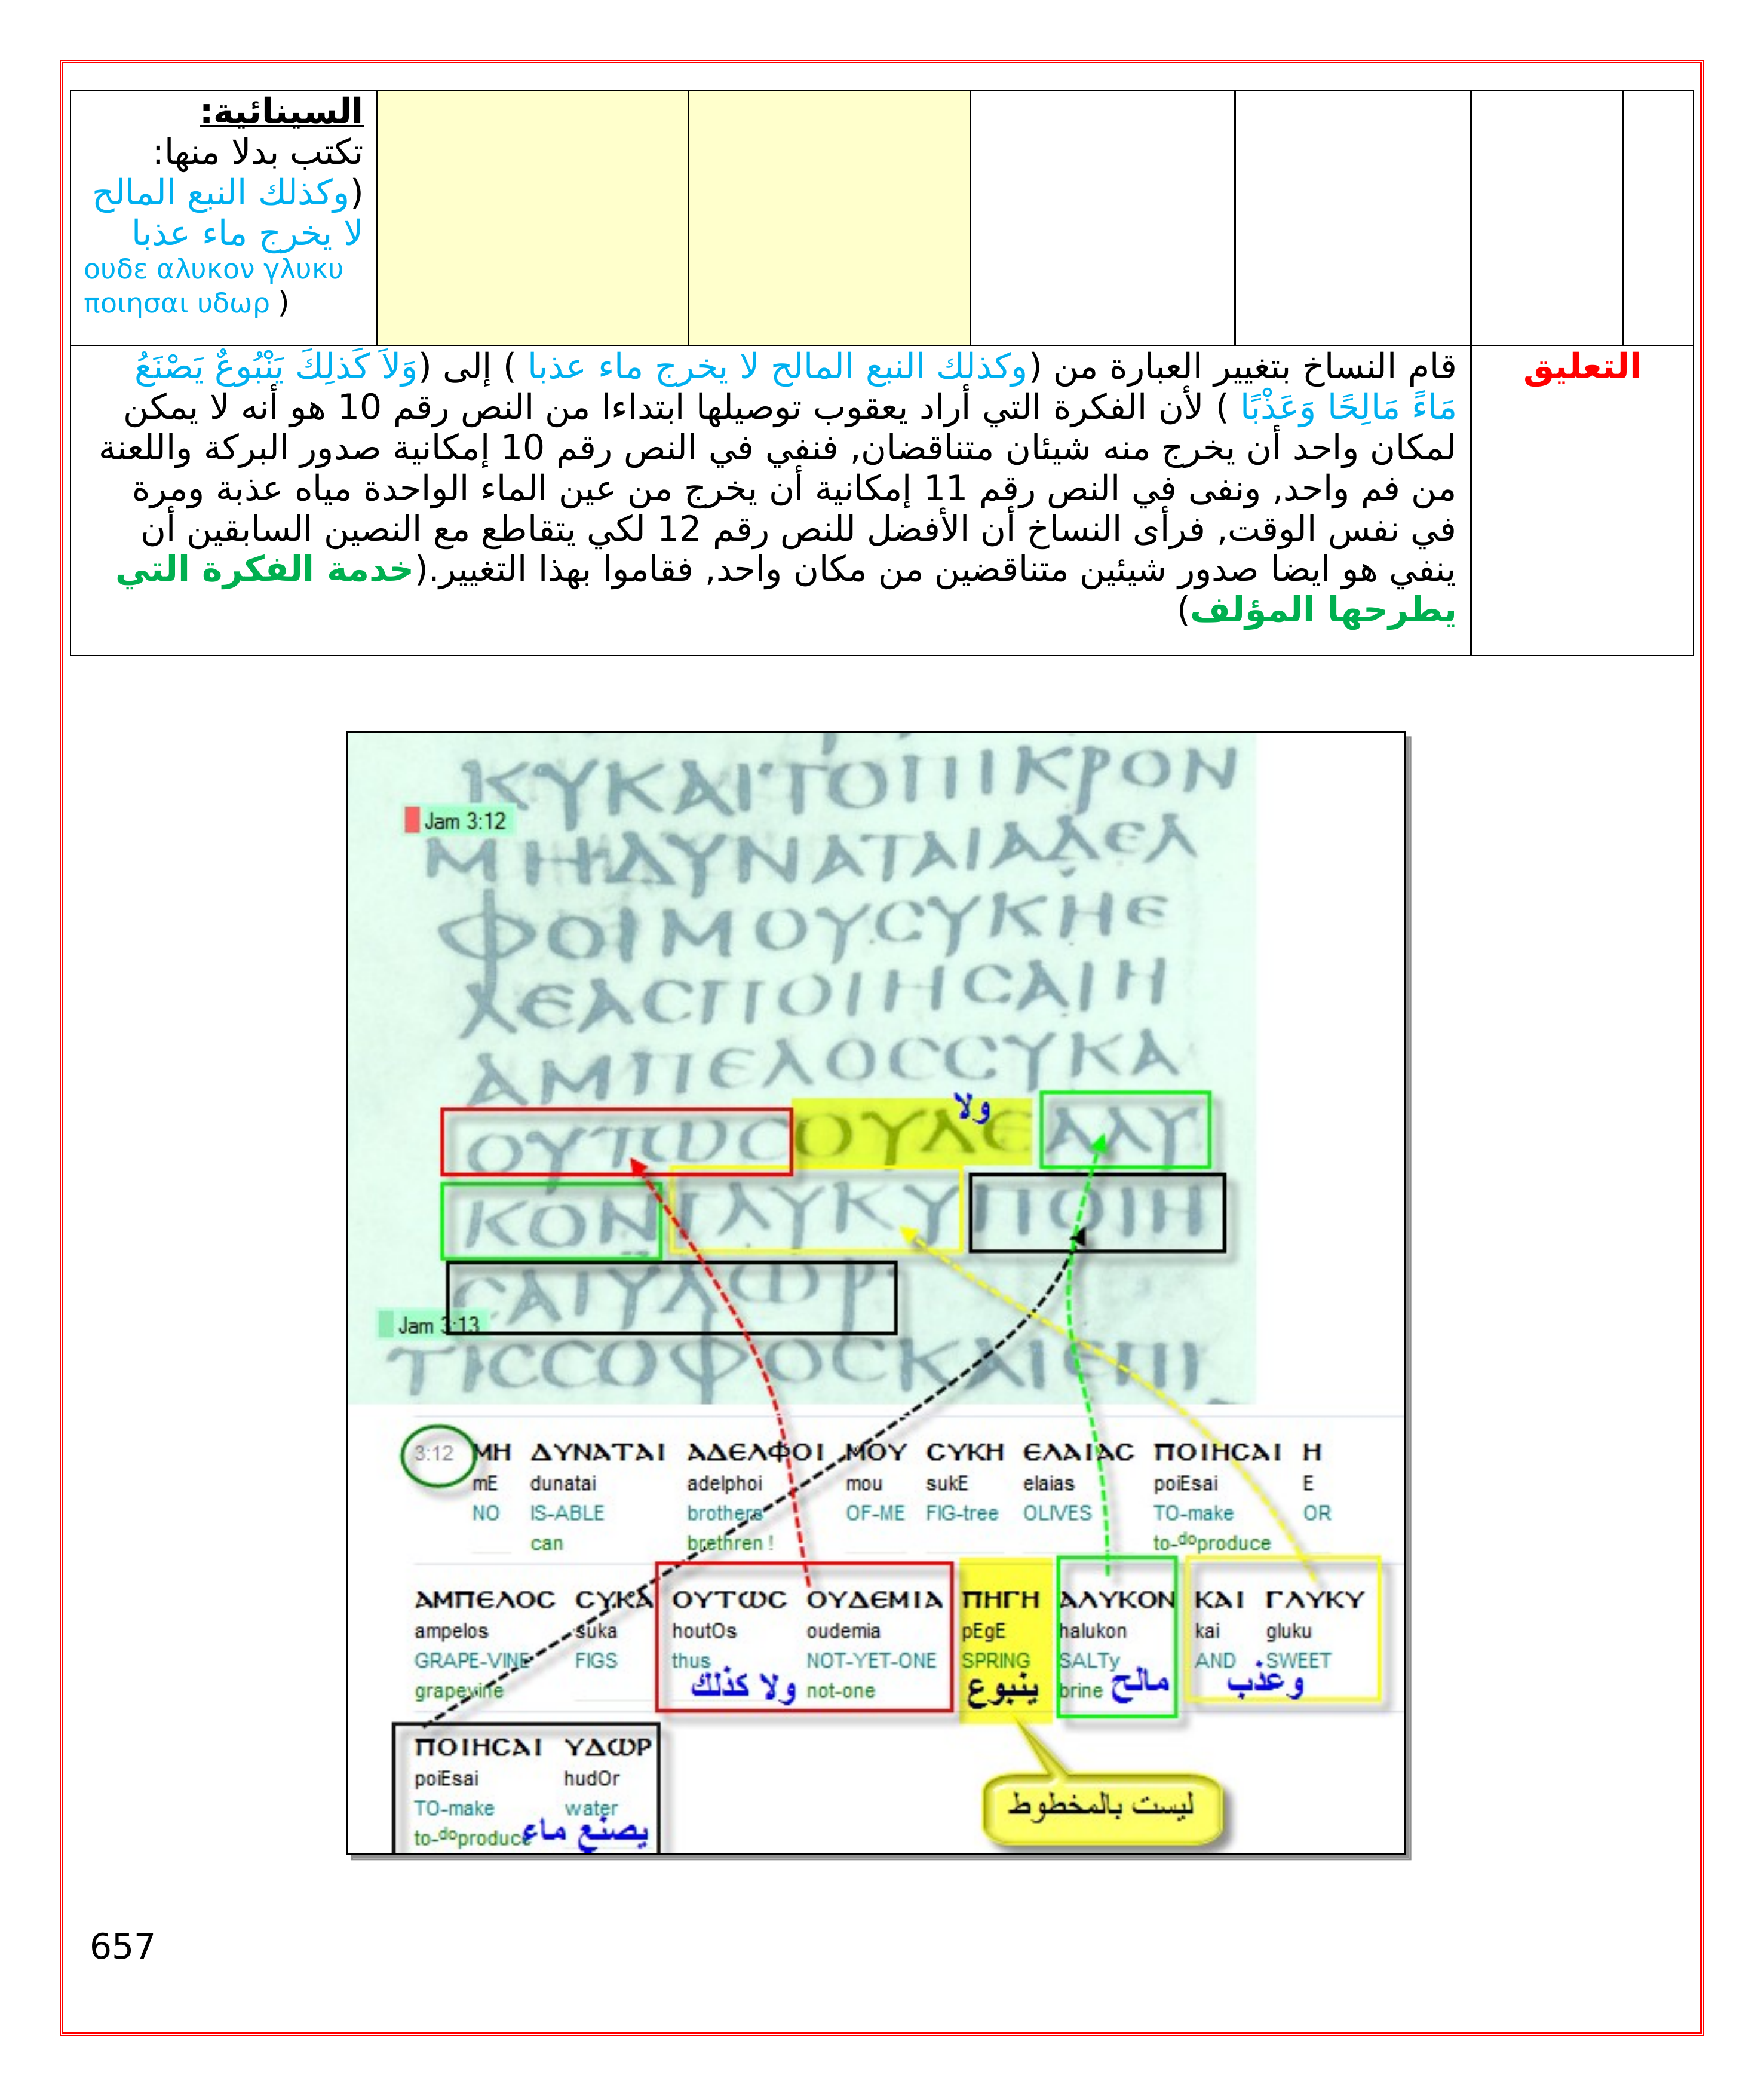 السينائية:
تكتب بدلا منها:
(وكذلك النبع المالح
لا يخرج ماء عذبا
ουδε αλυκον γλυκυ
ποιησαι υδωρ )
التعليق
قام النساخ بتغيير العبارة من (وكذلك النبع المالح لا يخرج ماء عذبا ) إلى (وَلاَ كَذلِكَ يَنْبُوعٌ يَصْنَعُ
مَاءً مَالِحًا وَعَذْبًا ) لأن الفكرة التي أراد يعقوب توصيلها ابتداءا من النص رقم 10 هو أنه لا يمكن
لمكان واحد أن يخرج منه شيئان متناقضان, فنفي في النص رقم 10 إمكانية صدور البركة واللعنة
من فم واحد, ونفى في النص رقم 11 إمكانية أن يخرج من عين الماء الواحدة مياه عذبة ومرة
في نفس الوقت, فرأى النساخ أن الأفضل للنص رقم 12 لكي يتقاطع مع النصين السابقين أن
ينفي هو ايضا صدور شيئين متناقضين من مكان واحد, فقاموا بهذا التغيير.(خدمة الفكرة التي
يطرحها المؤلف)
ΚΥΚΑΙΤΟΠΙΚΡΟΝ
Jam 3:12
ΜΗΔΥΝΑΤΑΙΑΔΕΛ
ΦΟΙΜΟΥϹΥΚΗΕ
ΛΕΑϹΠΟΙΗϹΑΙΗ
ΑΜΠΕΛΟϹϹΥΚΑ
ولا
ΟΥΤΩϹΟΥΔΕΑΛΥ
ΚΟΝΓΛΥΚΥΠΟΙΗ
ϹΑΙΥΔΩΡ
Jam 3:13
ΤΙϹϹΟΦΟϹΚΑΙΕΠΙ
3:12 ΜΗ ΔΥΝΑΤΑΙ ΑΔΕΛΦΟΙ ΜΟΥ ϹΥΚΗ ΕΛΑΙΑϹ ΠΟΙΗϹΑΙ Η
mE dunatai adelphoi mou sukE elaias poiEsai E
NO IS-ABLE brothers OF-ME FIG-tree OLIVES TO-make OR
can brethren ! to-doproduce
ΑΜΠΕΛΟϹ ϹΥΚΑ ΟΥΤΩϹ ΟΥΔΕΜΙΑ ΠΗΓΗ ΑΛΥΚΟΝ ΚΑΙ ΓΛΥΚΥ
ampelos suka houtOs oudemia pEgE halukon kai gluku
GRAPE-VINE FIGS thus NOT-YET-ONE SPRING SALTy AND SWEET
grapevine ولا كذلك not-one ينبوع brine مالح وعذب
ΠΟΙΗϹΑΙ ΥΔΩΡ
poiEsai hudOr
TO-make water
to-doproduce يصنع ماء
ليست بالمخطوط
657